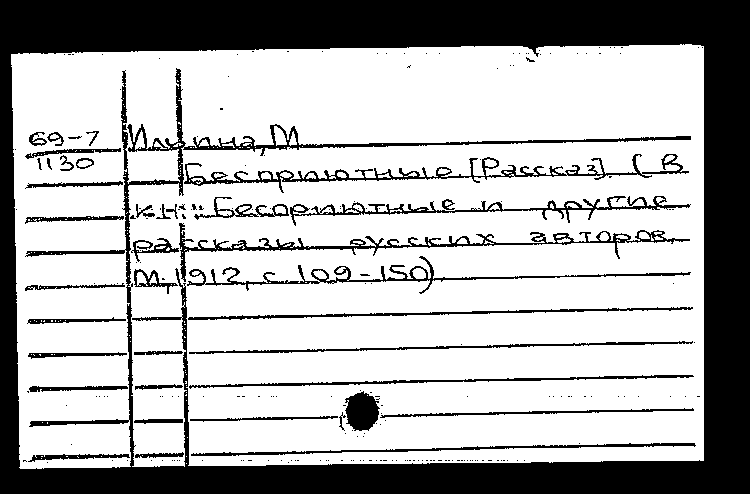 69-7 Ильина, М
1130 Бесприютные. [Рассказ]. (В
кн.: Бесприютные и другие
рассказы русских авторов.
М., 1912, с. 109-150)